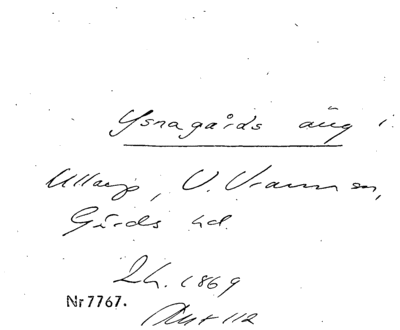 Ysnagårds äng i
Ullarp, V. Vram sn,
Gärds hd.
Lh. 1869
Nr 7767.
Akt 112